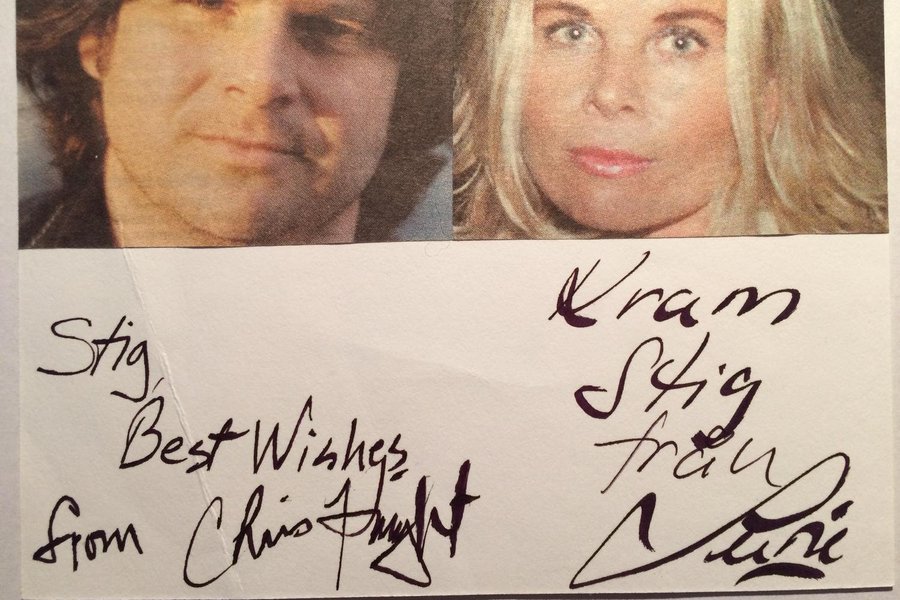 Stig,
Best Wishes
from Chris Knight
Kram
Stig
från